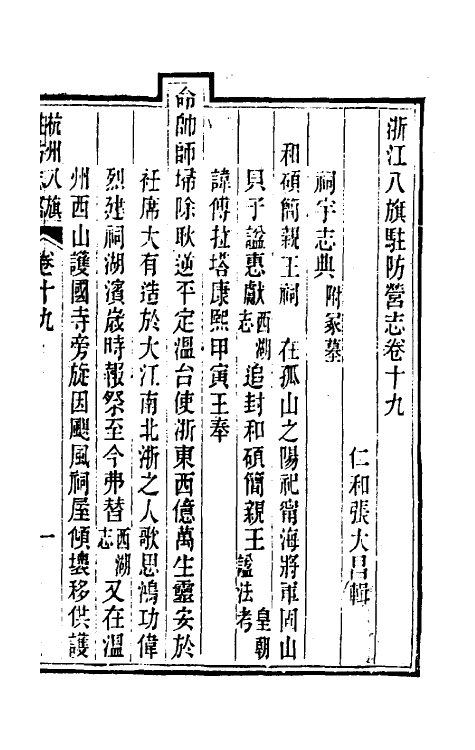 浙江八旗駐防營志卷十九
仁和張大昌輯
祠宇志典附冢墓
和碩簡親王祠 在孤山之陽祀甯海將軍固山
貝子謚惠獻西湖志追封和碩簡親王皇朝謚法考
諱傅拉塔康熙甲寅王奉
命帥師埽除耿逆平定溫台使浙東西億萬生靈安於
衽席大有造於大江南北浙之人歌思鴻功偉
烈建祠湖濱歲時報祭至今弗替西湖志又在溫
州西山護國寺旁旋因颶風祠屋傾壞移供護
杭州八旗
卷十九
一